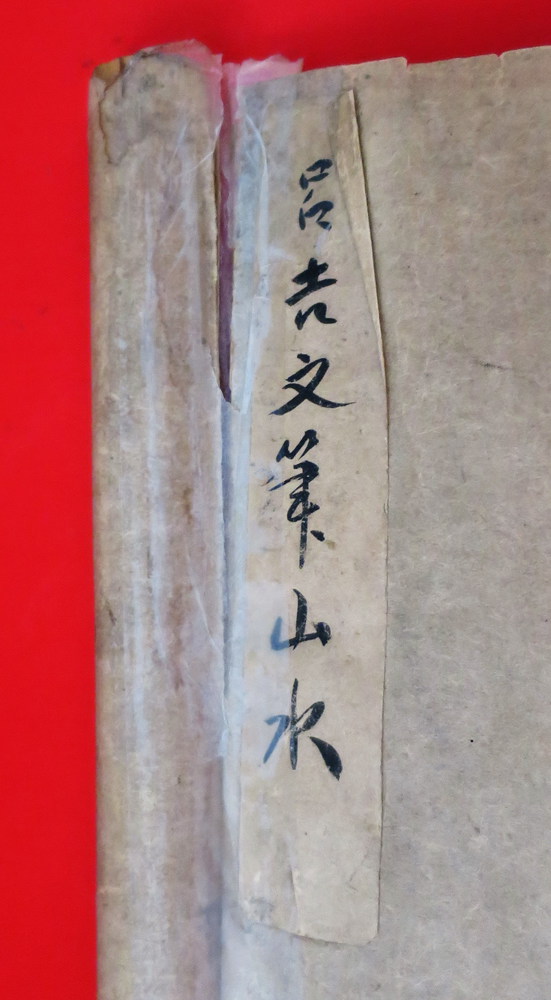 呂吉文筆山水